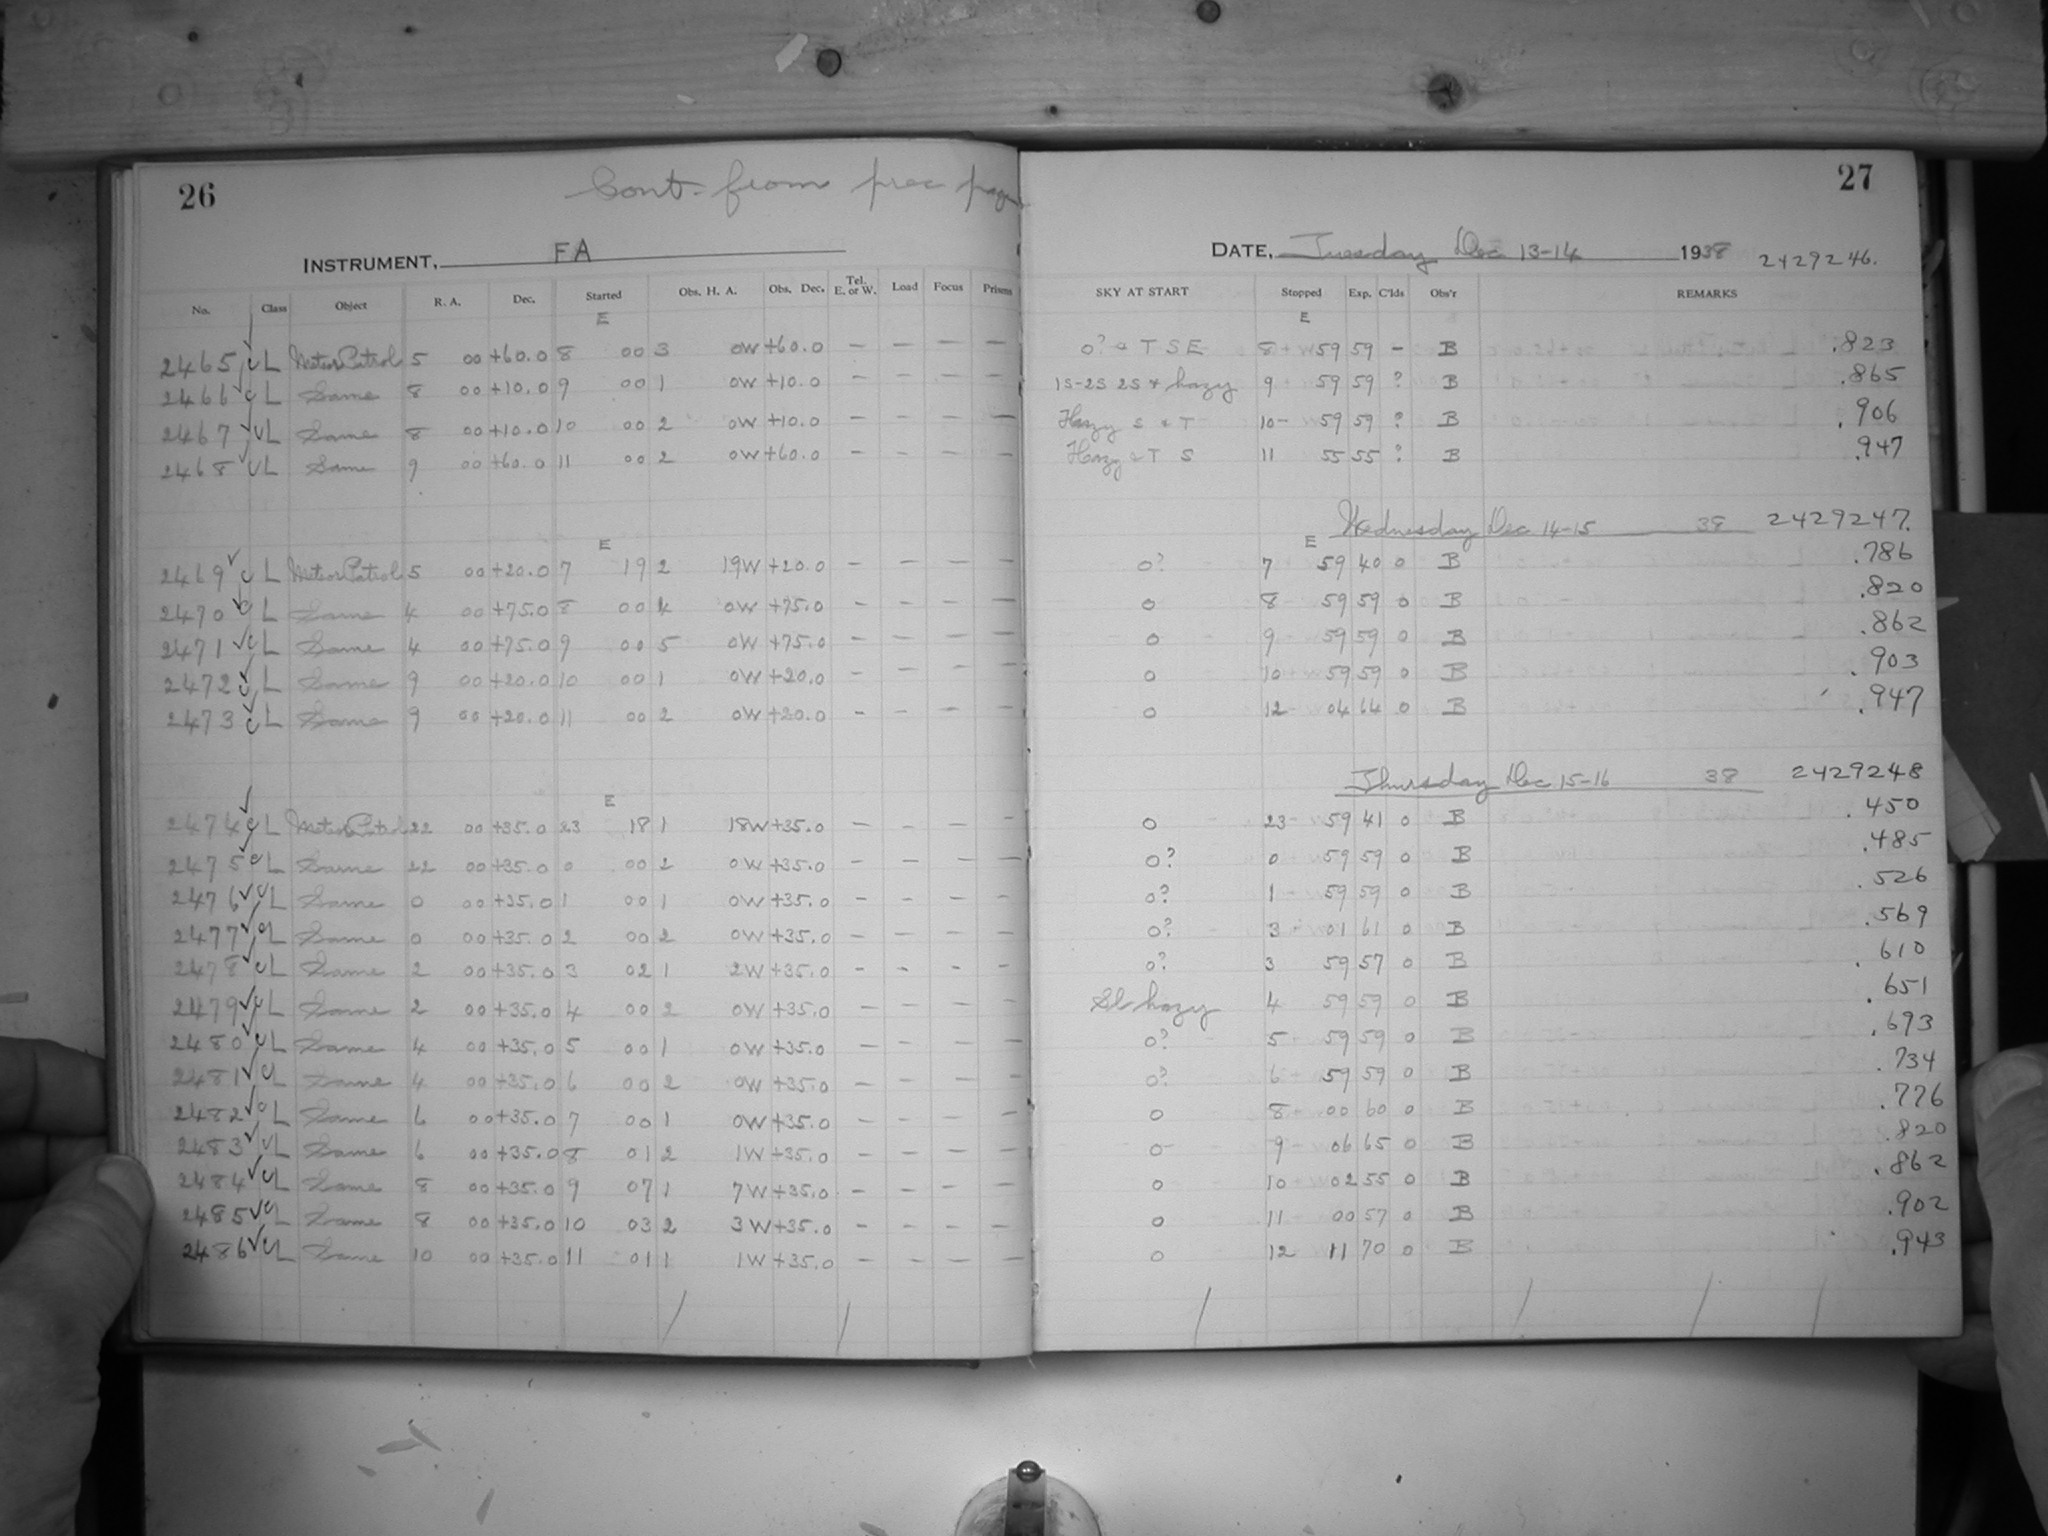 26
Cont. from prec page
INSTRUMENT, FA
No. Class Object R. A. Dec. Started Obs. H. A. Obs. Dec. Tel. E. or W. Load Focus Prisms
E
2465 L Meteor Patrol 5 00 +60.0 8 00 3 0W +60.0 — — — —
2466 L Same 8 00 +10.0 9 00 1 0W +10.0 — — — —
2467 L Same 8 00 +10.0 10 00 2 0W +10.0 — — — —
2468 L Same 9 00 +60.0 11 00 2 0W +60.0 — — — —
E
2469 L Meteor Patrol 5 00 +20.0 7 19 2 19W +20.0 — — — —
2470 L Same 4 00 +75.0 8 00 4 0W +75.0 — — — —
2471 L Same 4 00 +75.0 9 00 5 0W +75.0 — — — —
2472 L Same 9 00 +20.0 10 00 1 0W +20.0 — — — —
2473 L Same 9 00 +20.0 11 00 2 0W +20.0 — — — —
E
2474 L Meteor Patrol 22 00 +35.0 23 18 1 18W +35.0 — — — —
2475 L Same 22 00 +35.0 0 00 2 0W +35.0 — — — —
2476 L Same 0 00 +35.0 1 00 1 0W +35.0 — — — —
2477 L Same 0 00 +35.0 2 00 2 0W +35.0 — — — —
2478 L Same 2 00 +35.0 3 02 1 2W +35.0 — — — —
2479 L Same 2 00 +35.0 4 00 2 0W +35.0 — — — —
2480 L Same 4 00 +35.0 5 00 1 0W +35.0 — — — —
2481 L Same 4 00 +35.0 6 00 2 0W +35.0 — — — —
2482 L Same 6 00 +35.0 7 00 1 0W +35.0 — — — —
2483 L Same 6 00 +35.0 8 01 2 1W +35.0 — — — —
2484 L Same 8 00 +35.0 9 07 1 7W +35.0 — — — —
2485 L Same 8 00 +35.0 10 03 2 3W +35.0 — — — —
2486 L Same 10 00 +35.0 11 01 1 1W +35.0 — — — —
27
DATE, Tuesday Dec 13-14 1938 2429246.
SKY AT START Stopped Exp. C'lds Obs'r REMARKS
E
0? & T S E 8 59 59 — B .823
1S-2S 2S & hazy 9 59 59 ? B .865
Hazy S & T 10 59 59 ? B .906
Hazy & T S 11 55 55 ? B .947
Wednesday Dec 14-15 38 2429247.
E
0? 7 59 40 0 B .786
0 8 59 59 0 B .820
0 9 59 59 0 B .862
0 10 59 59 0 B .903
0 12 04 64 0 B .947
Thursday Dec 15-16 38 2429248
0 23 59 41 0 B .450
0? 0 59 59 0 B .485
0? 1 59 59 0 B .526
0? 3 01 61 0 B .569
0? 3 59 57 0 B .610
Sl hazy 4 59 59 0 B .651
0? 5 59 59 0 B .693
0? 6 59 59 0 B .734
0 8 00 60 0 B .776
0 9 06 65 0 B .820
0 10 02 55 0 B .862
0 11 00 57 0 B .902
0 12 11 70 0 B .943